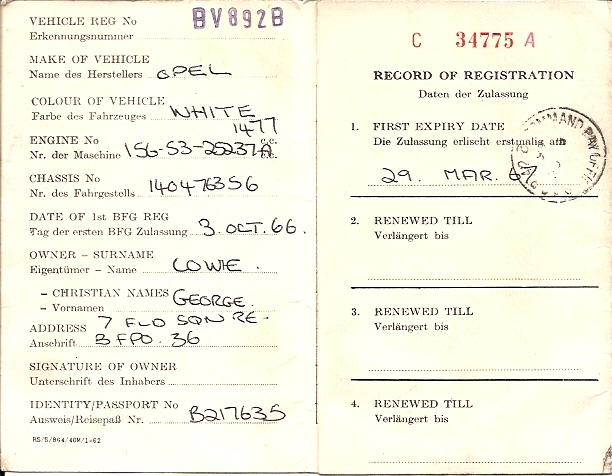 VEHICLE REG No BV892B
Erkennungsnummer
MAKE OF VEHICLE
Name des Herstellers OPEL
COLOUR OF VEHICLE
Farbe des Fahrzeuges WHITE
1477 c.c.
ENGINE No
Nr. der Maschine 156-S3-25237A
CHASSIS No
Nr. des Fahrgestells 140476356
DATE OF 1st BFG REG
Tag der ersten BFG Zulassung 3. OCT. 66.
OWNER – SURNAME
Eigentümer – Name LOWE.
– CHRISTIAN NAMES
– Vornamen GEORGE.
ADDRESS 7 FLD SQN RE.
Anschrift BFPO. 36
SIGNATURE OF OWNER
Unterschrift des Inhabers
IDENTITY/PASSPORT No
Ausweis/Reisepaß Nr. B217635
RS/S/864/40M/1-62
C 34775 A
RECORD OF REGISTRATION
Daten der Zulassung
1. FIRST EXPIRY DATE
Die Zulassung erlischt erstmalig am
29. MAR. 67
COMMAND PAY OFFICE
2. RENEWED TILL
Verlängert bis
3. RENEWED TILL
Verlängert bis
4. RENEWED TILL
Verlängert bis